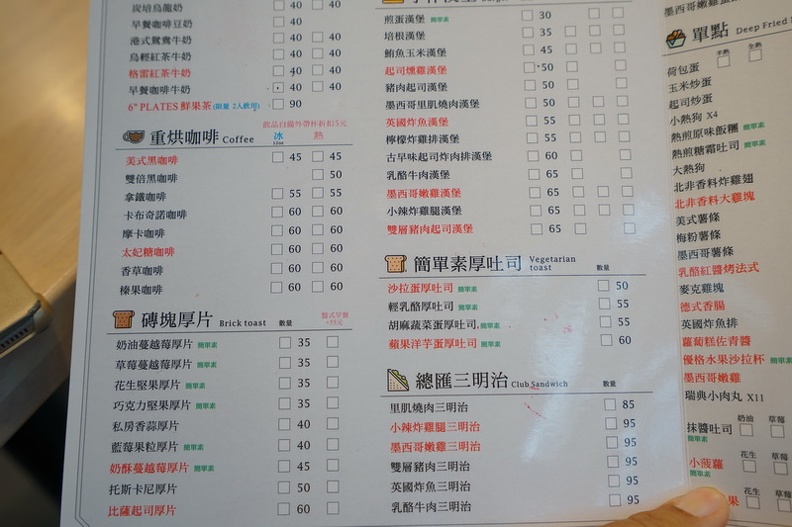 炭焙烏龍奶 40 40
早餐咖啡豆奶 40
港式鴛鴦牛奶 40 40
烏輕紅茶牛奶 40 40
格雷紅茶牛奶 40 40
早餐咖啡牛奶 40 40
6" PLATES 鮮果茶(限量 2人飲用) 90
飲品自備外帶杯折扣5元
重烘咖啡 Coffee 冰 熱
美式黑咖啡 45 45
雙倍黑咖啡 50
拿鐵咖啡 55 55
卡布奇諾咖啡 60 60
摩卡咖啡 60 60
太妃糖咖啡 60 60
香草咖啡 60 60
榛果咖啡 60 60
磚塊厚片 Brick toast 數量
奶油蔓越莓厚片 簡單素 35
草莓蔓越莓厚片 簡單素 35
花生堅果厚片 簡單素 35
巧克力堅果厚片 簡單素 35
私房香蒜厚片 40
藍莓果粒厚片 簡單素 40
奶酥蔓越莓厚片 簡單素 45
托斯卡尼厚片 50
比薩起司厚片 60
煎蛋漢堡 簡單素 30
培根漢堡 35
鮪魚玉米漢堡 45
起司燻雞漢堡 50
豬肉起司漢堡 50
墨西哥里肌燒肉漢堡 50
英國炸魚漢堡 55
檸檬炸雞排漢堡 55
古早味起司炸肉排漢堡 60
乳酪牛肉漢堡 65
墨西哥嫩雞漢堡 65
小辣炸雞腿漢堡 65
雙層豬肉起司漢堡 65
簡單素厚吐司 Vegetarian toast 數量
沙拉蛋厚吐司 簡單素 50
輕乳酪厚吐司 簡單素 55
胡麻蔬菜蛋厚吐司 簡單素 55
蘋果洋芋蛋厚吐司 簡單素 60
總匯三明治 Club Sandwich 數量
里肌燒肉三明治 85
小辣炸雞腿三明治 95
墨西哥嫩雞三明治 95
雙層豬肉三明治 95
英國炸魚三明治 95
乳酪牛肉三明治 95
墨西哥嫩蛋
單點 Deep Fried
半熟 全熟
荷包蛋
玉米炒蛋
起司炒蛋
小熱狗 X4
熱煎原味飯糰 簡單素
熱煎糖霜吐司 簡單素
大熱狗
北非香料炸雞翅
北非香料大雞塊
美式薯條
梅粉薯條
墨西哥薯條
乳酪紅醬烤法式
麥克雞塊
德式香腸
英國炸魚排
蘿蔔糕佐青醬
優格水果沙拉杯 簡單素
墨西哥嫩雞
瑞典小肉丸 X11
奶油 草莓
抹醬吐司
簡單素
花生 草莓
小菠蘿
簡單素
花生 草莓
果